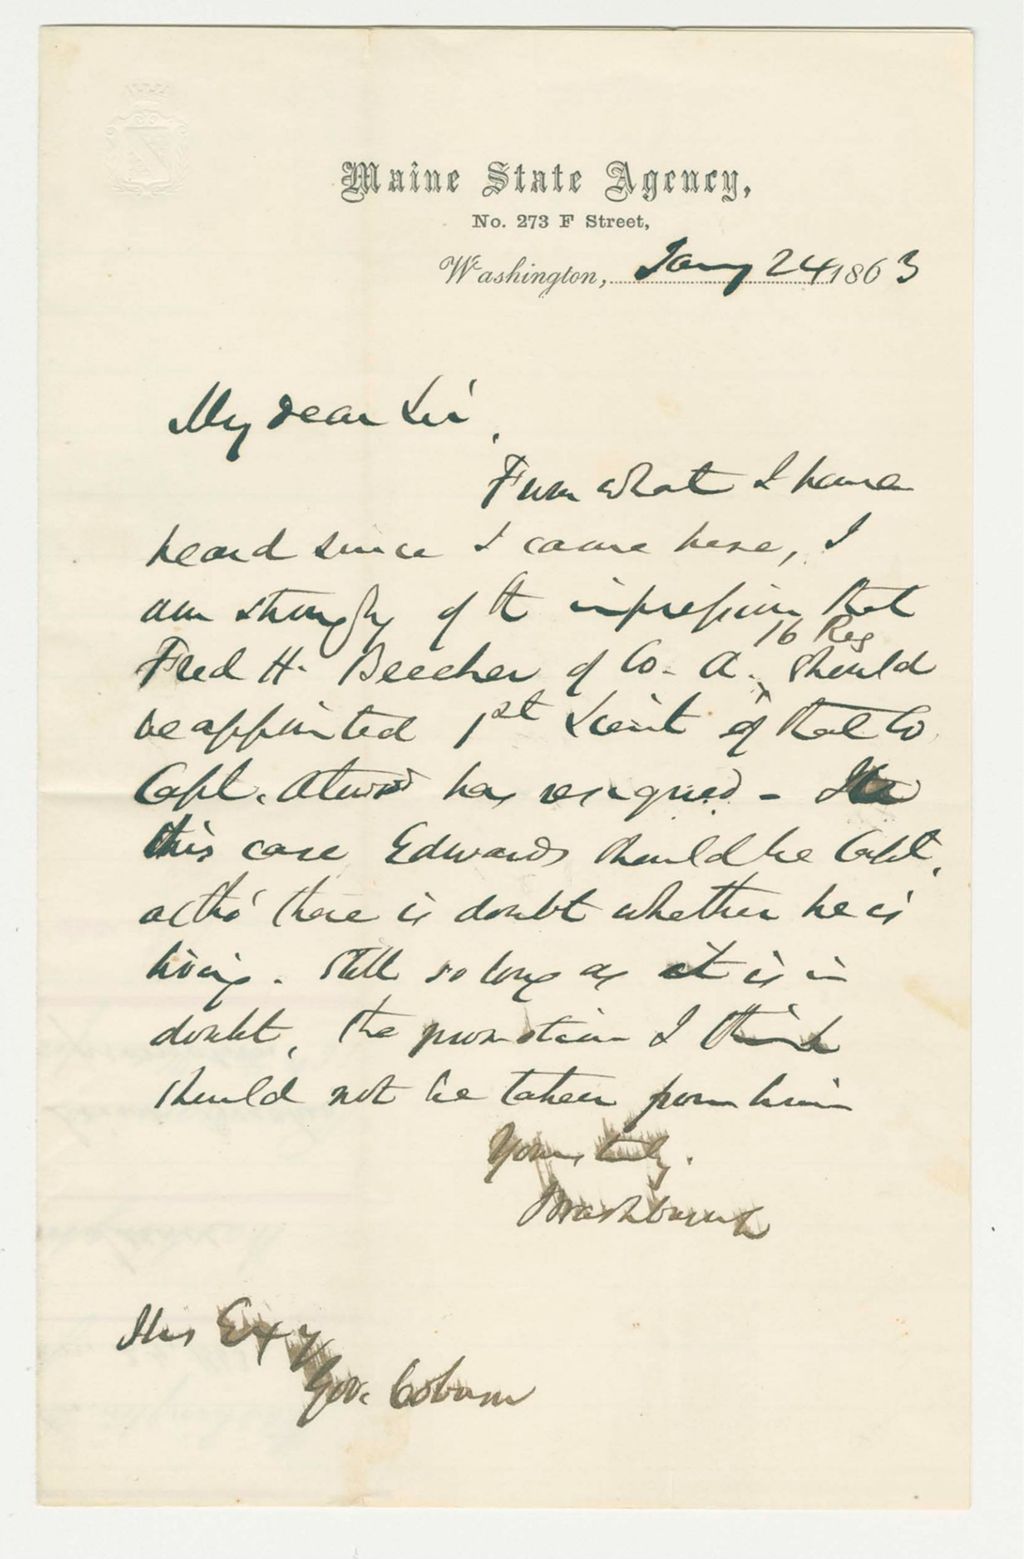 Maine State Agency,
No. 273 F Street,
Washington, Jany 24 1863
My dear Sir,
From what I have
heard since I came here, I
am strongly of the impression that
16 Reg
Fred H. Beecher of Co. A. ^ should
be appointed 1st Lieut of that Co
Capt. Atwood has resigned - In
this case Edwards should be Capt,
altho' there is doubt whether he is
living. Still so long as it is in
doubt, the promotion I think
should not be taken from him
Yours truly.
Washburn
His Exy
Gov. Coburn